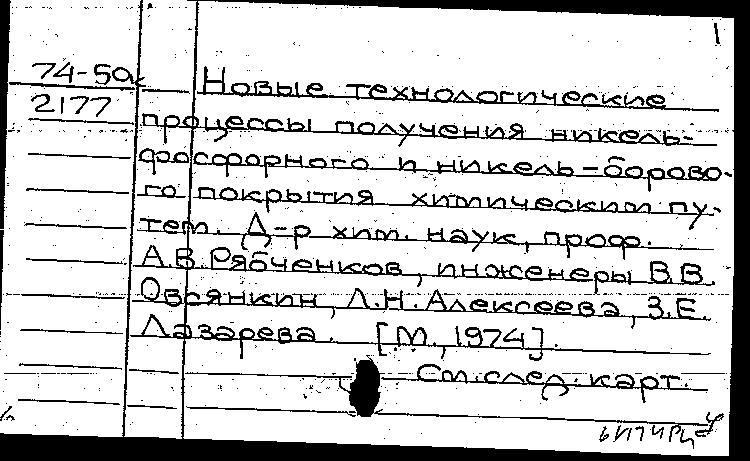 1
74-50к
Новые технологические
2177
процессы получения никель-
фосфорного и никель-борово-
го покрытия химическим пу-
тем. Д-р хим. наук, проф.
А.В. Рябченков, инженеры В.В.
Овсянкин, Л.Н. Алексеева, З.Е.
Лазарева. [М., 1974].
См. след. карт.